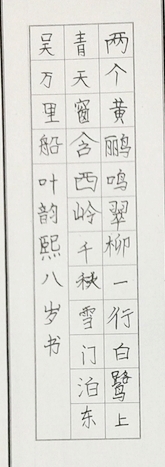 两个黄鹂鸣翠柳一行白鹭上
青天窗含西岭千秋雪门泊东
吴万里船叶韵熙八岁书